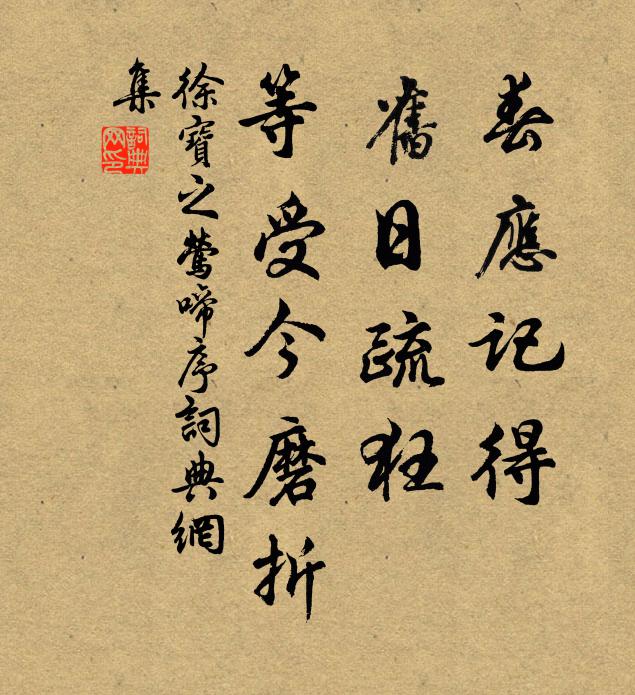 春應記得
舊日疏狂
等受今磨折
徐寶之鶯啼序詞典網
集
詞典網印